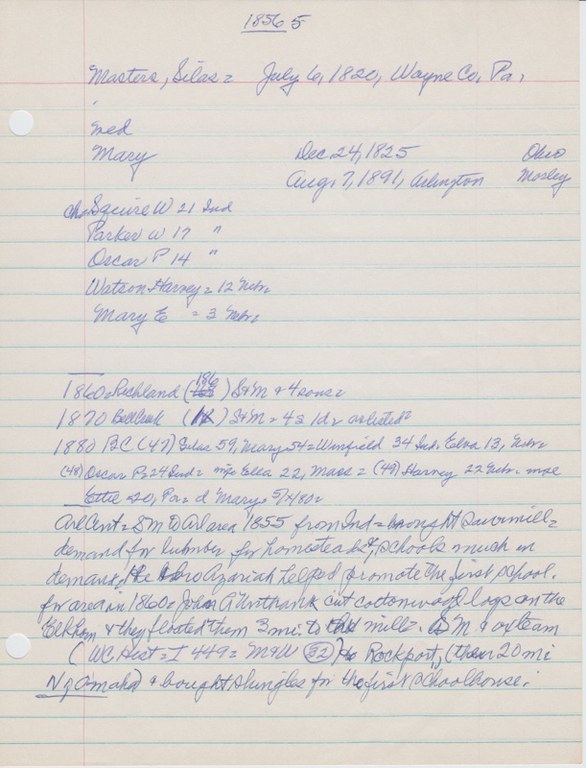 1856 5
Masters, Silas = July 6, 1820, Wayne Co, Pa,
med
Mary Dec. 24, 1825 Ohio
Aug, 7, 1891, Arlington Mosley
ch. Squire W 21 Ind
Parker W 17 "
Oscar P 14 "
Watson Harney = 12 Nebr
Mary E = 3 Nebr
1860 = Richland ( 186 ) S & M & 4 sons =
1870 Bellcreek ( ) S & M = 4 s 1 d =
1880 BC (47) Silas 59, Mary 54 = Winfield 34 Ind, Elva 13, Nebr
(48) Oscar P = 24 Ind = wife Ella 22, Mase = (49) Harney 22 Nebr =
Ettie = 20, Pa = d Mary = 5/4/80 =
Arl Cent = S M to Arl area 1855 from Ind = brought sawmill =
demand for lubmber for homesteads, schools much in
demand, the bro Azariah helped promote the first school
for area in 1860 = John A Unthank cut cottonwood logs on the
Elkhorn & they floated them 3 mi. to mill =. S M & ox team
(WC Hist = I 449 = M & W 82) to Rockport, (then 20 mi
N of Omaha) & bought shingles for the first schoolhouse.